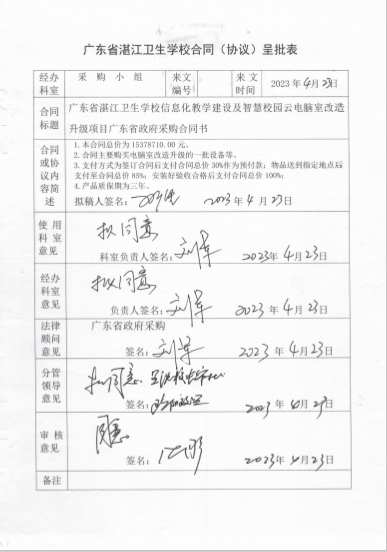 广东省湛江卫生学校合同（协议）呈批表
经办科室 采购小组 来文编号 来文时间 2023年4月23日
合同标题 广东省湛江卫生学校信息化教学建设及智慧校园云电脑室改造
升级项目广东省政府采购合同书
合同或协议内容简述
1.本合同总价为15378710.00元。
2.合同主要购买电脑室改造升级的一批设备等。
3.支付方式为签订合同后支付合同总价30%作为预付款；物品送到指定地点后
支付至合同总价85%；安装好验收合格后支付合同总价100%；
4.产品质保期为三年。
拟稿人签名： 2023年4月23日
使用科室意见 拟同意
科室负责人签名： 2023年4月23日
经办科室意见 拟同意
负责人签名： 2023年4月23日
法律顾问意见 广东省政府采购
签名： 2023年4月23日
分管领导意见 拟同意
签名： 2023年4月23日
审核意见 同意
签名： 2023年4月23日
备注